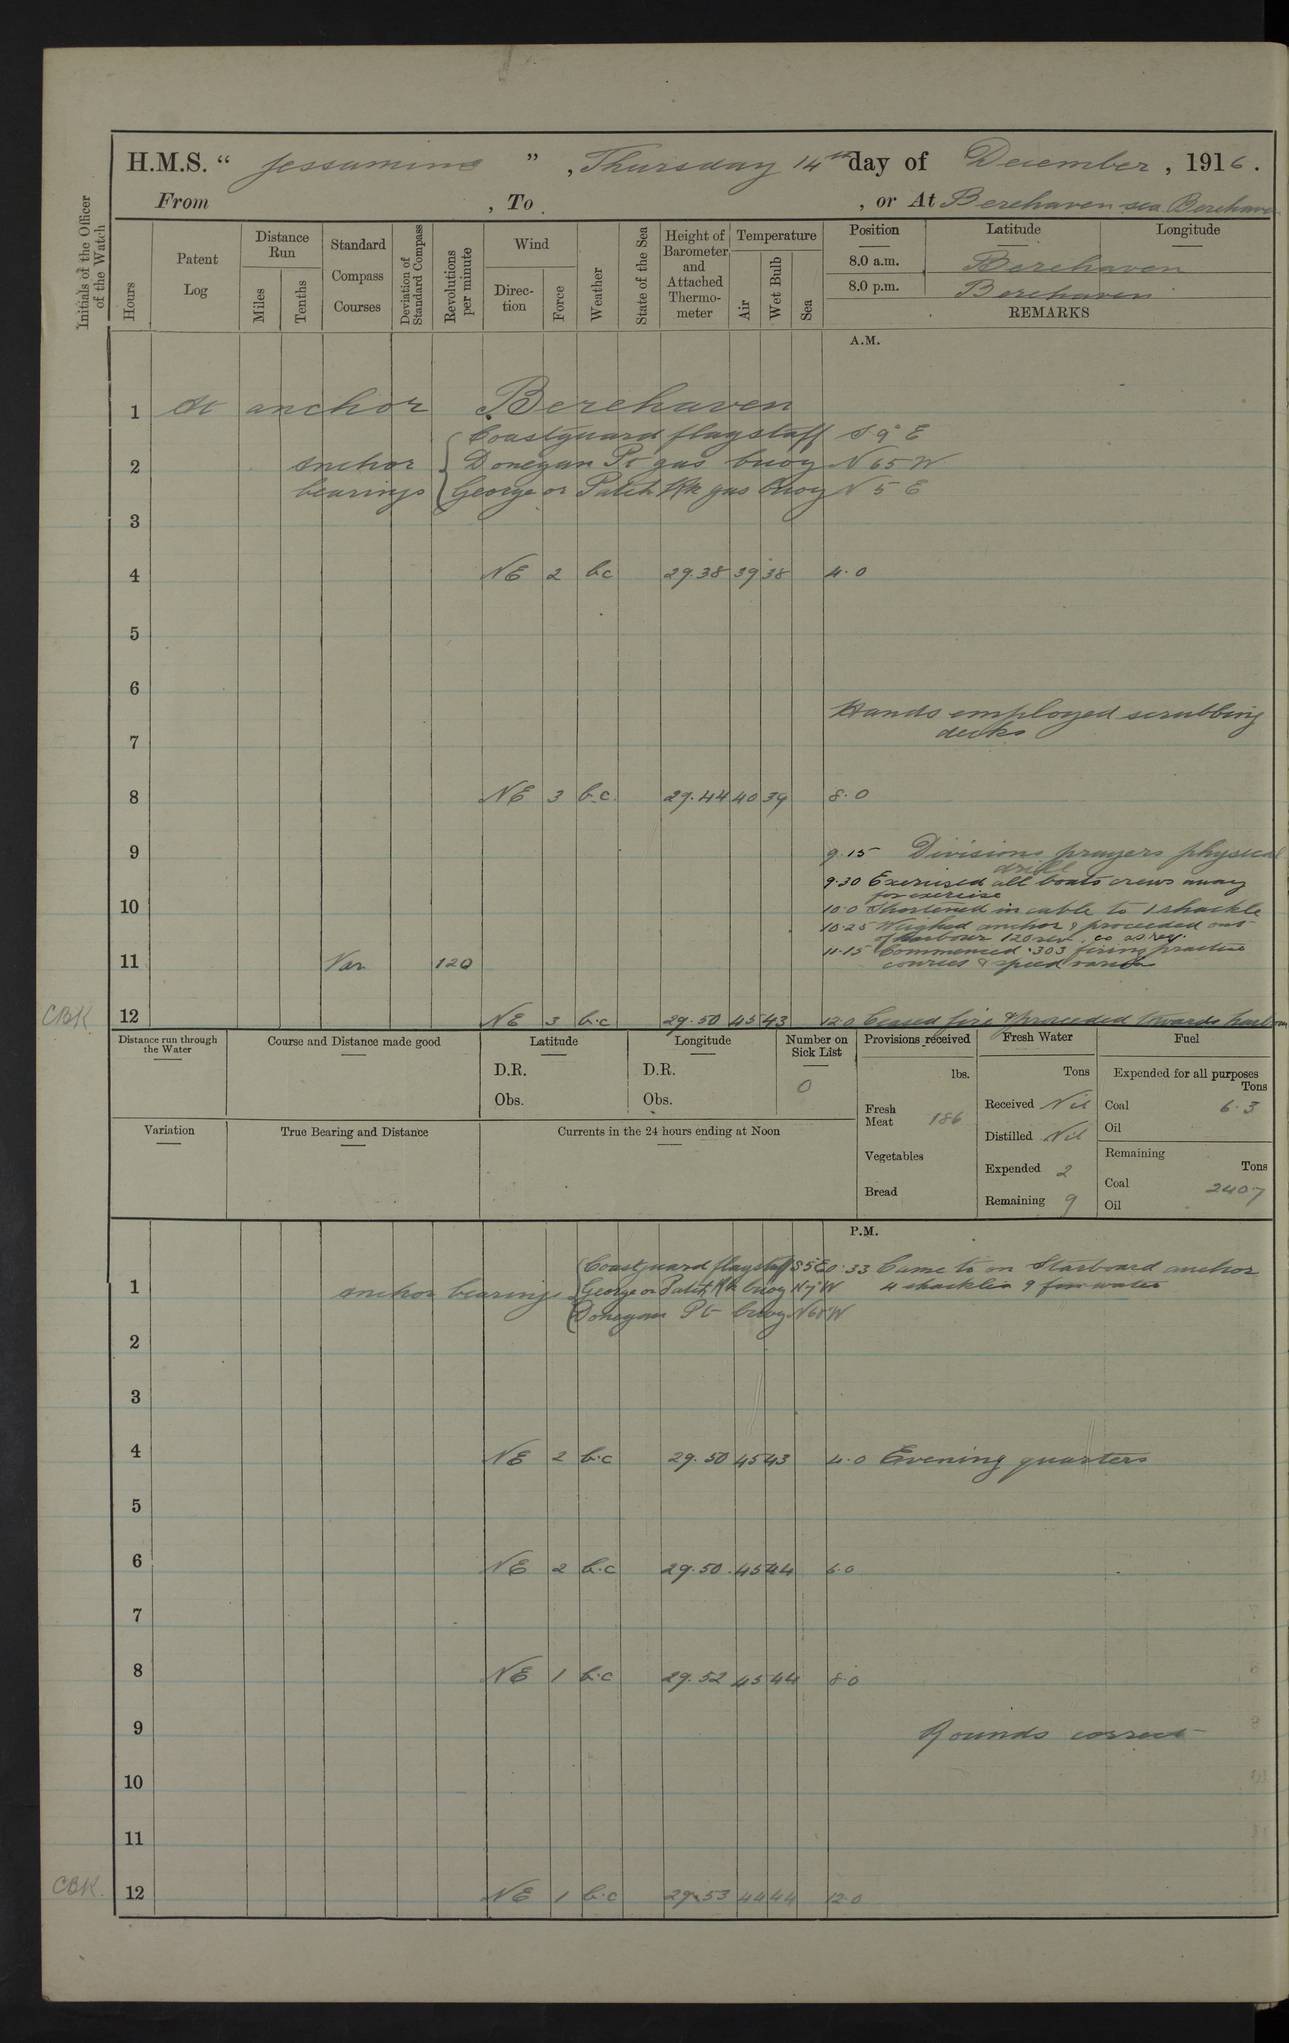 H.M.S. “ Jessamine ”, Thursday 14th day of December, 1916.
From , To , or At Berehaven sea Berehaven
Initials of the Officer of the Watch
Hours
Patent Log
Distance Run
Miles
Tenths
Standard Compass Courses
Deviation of Standard Compass
Revolutions per minute
Wind
Direction
Force
Weather
State of the Sea
Height of Barometer and Attached Thermometer
Temperature
Air
Wet Bulb
Sea
Position Latitude Longitude
8.0 a.m. Berehaven
8.0 p.m. Berehaven
REMARKS
A.M.
1 At anchor Berehaven
Coastguard flagstaff S 9° E
2 Anchor Donegan Pt gas buoy N 65 W
bearings George or Patch Rk gas buoy N 5 E
3
4 NE 2 bc 29.38 39 38 4.0
5
6
Hands employed scrubbing
7 decks
8 NE 3 b.c. 29.44 40 39 8.0
9 9.15 Divisions prayers physical
drill
9.30 Exercised all boats crews away
for exercise
10 10.0 Shortened in cable to 1 shackle
10.25 Weighed anchor & proceeded out
of harbour 120 rev. co as req.
11.15 Commenced .303 firing practice
11 Var 120 courses & speed various
CBK 12 NE 3 b.c 29.50 45 43 12.0 Ceased fire & proceeded towards harbour
Distance run through the Water
Course and Distance made good
Latitude
D.R.
Obs.
Longitude
D.R.
Obs.
Number on Sick List
0
Provisions received
lbs.
Fresh Meat 186
Vegetables
Bread
Fresh Water
Tons
Received Nil
Distilled Nil
Expended 2
Remaining 9
Fuel
Expended for all purposes
Tons
Coal 6.3
Oil
Remaining
Tons
Coal 240.7
Oil
Variation
True Bearing and Distance
Currents in the 24 hours ending at Noon
P.M.
Coastguard flagstaff S 5 E 0.33 Came to on Starboard anchor
1 Anchor bearings George or Patch Rk buoy N 7 W 4 shackles 9 fm water
Donegan Pt buoy N 68 W
2
3
4 NE 2 b.c 29.50 45 43 4.0 Evening quarters
5
6 NE 2 b.c 29.50 45 44 6.0
7
8 NE 1 b.c 29.52 45 44 8.0
9 Rounds correct
10
11
CBK. 12 NE 1 b.c 29.53 44 44 12.0